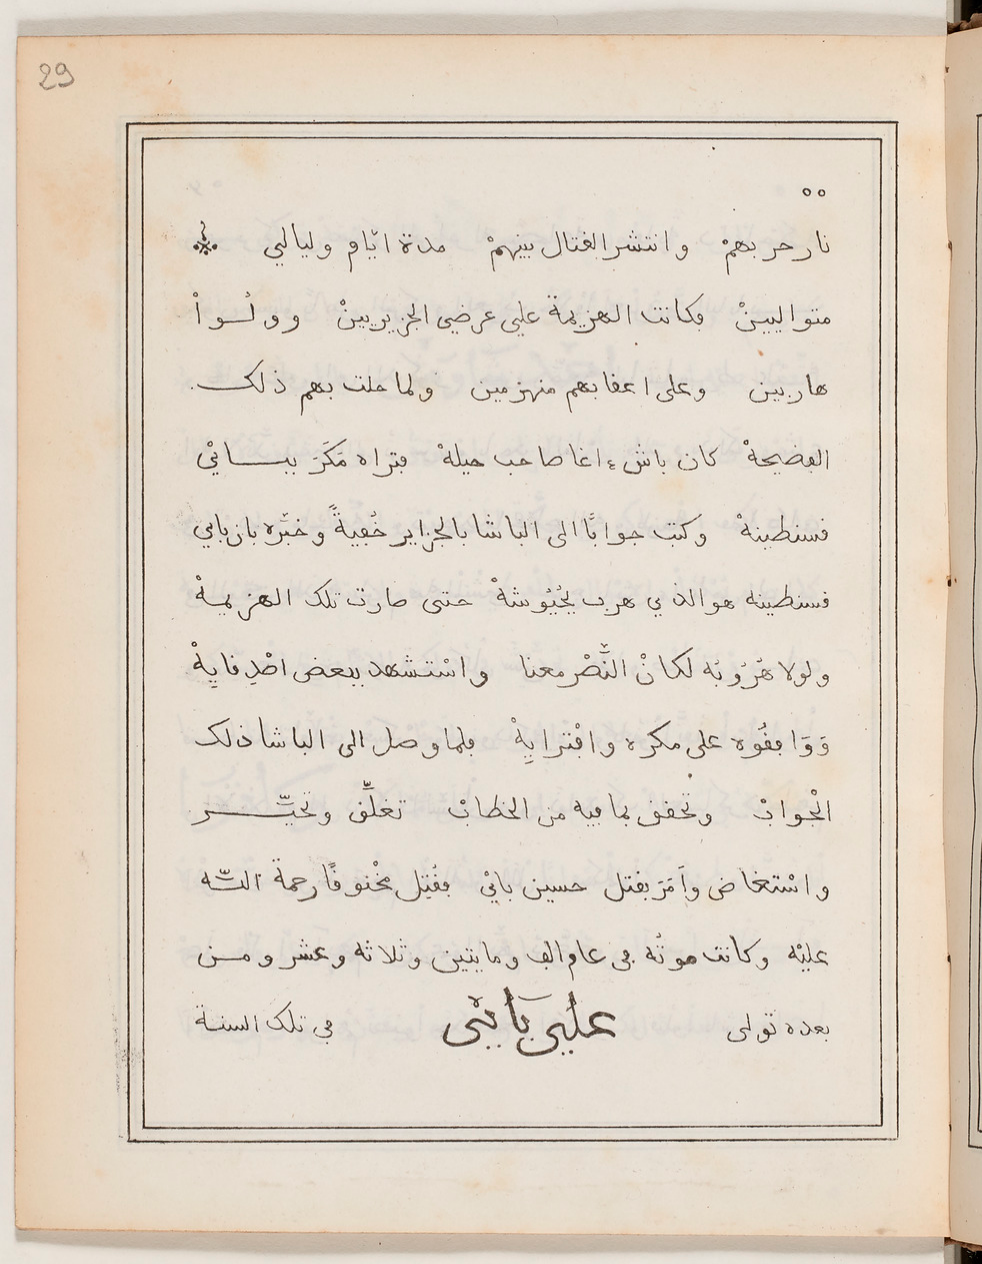 29
٥٥
نار حربهمْ وانتشر الفتال بينهمْ مدة ايّام وليالي
متواليينْ وكانت الهزيمة على عرضي الجزيريينْ وولُــواْ
هاربين وعلى اعقابهم منهزمين ولما حلت بهم ذلك
الفضيحةْ كان باش ءاغا صاحب حيلةْ فتراه مَكَرَ ببــايْ
فسنطينةْ وكتب جوابًا الى الباشا بالجزاير خُفيةً وخبّره بان باي
فسنطينه هو الذي هرب بجُيُوشهْ حتى صارت تلك الهزيمةْ
ولولا هُرُوبُه لكانْ النَّصْر معنا واسْتشهد ببعض اصْدِفايِهْ
وَوَافِقُوه على مكره وافْترايِهْ فلما وصل الى الباشا ذلك
الْجوابْ وتحقق بما فيه من الخطابْ تغلّق وتحيّــر
واسْتغاض وأمَرَ بقتل حسين بايْ فقُتِل مخْنوقًا رحمة اللّه
عليْه وكانت موتُه في عام الف ومايتين وثلاثه وعشر ومــن
بعده تولى علي بايْ في تلك السنة